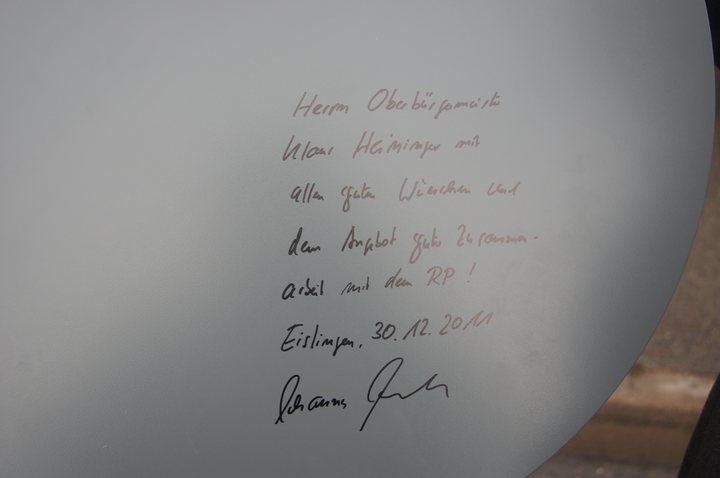 Herrn Oberbürgermeister
Klaus Heininger mit
allen guten Wünschen und
dem Angebot guter Zusammen-
arbeit mit dem RP!
Eislingen, 30.12.2011
Johannes